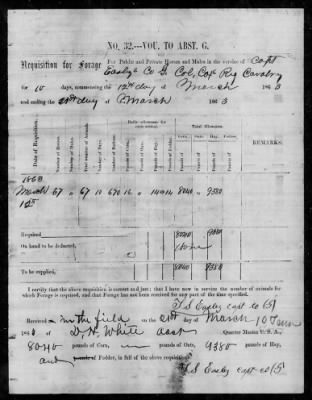 NO. 32.—VOU. TO ABST. G.
Requisition for Forage For Public and Private Horses and Mules in the service of Capt
Easley's Co G Col, Cav Cavalry
for 10 days, commencing the 12th day of March 1863
and ending the day of March 1863
Date of Requisition.
Number of Horses.
Number of Mules.
Total number of Animals.
Number of Days.
Number of Rations.
Daily allowance for each ration.
Pounds of Corn.
Pounds of Oats.
Pounds of Hay.
Pounds of Fodder.
Total Allowance.
Corn.
Oats.
Hay.
Fodder.
REMARKS.
1863
March 67 " 67 10 670 12 14 8040 " 9380
12th
Required 8040 9380
On hand to be deducted, None
To be supplied, 8040 9380
I certify that the above requisition is correct and just; that I have now in service the number of animals
for which Forage is required, and that Forage has not been received for any part of the time specified.
Received in the field on the day of March
1863 of D. N. White asst Quarter Master C. S. A.,
8040 pounds of Corn, pounds of Oats, 9380 pounds of Hay,
and of Fodder, in full of the above requisition.